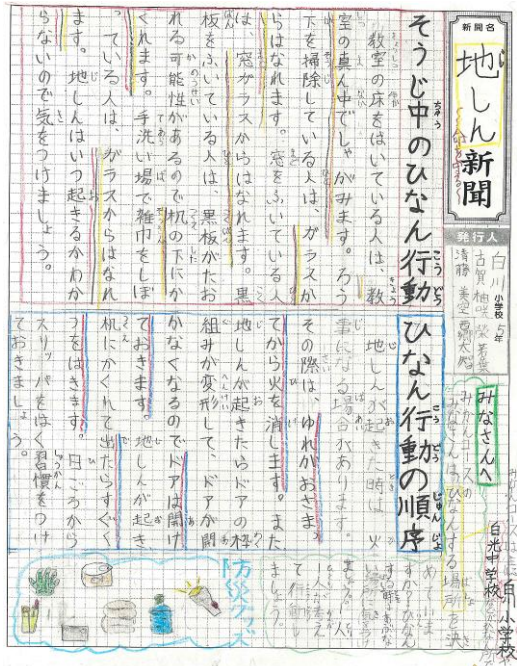 新聞名
地しん新聞
発行人
白川小学校5年
そうじ中のひなん行動
教室の床をはいている人は、教
室の真ん中でしゃがみます。ろう
下を掃除している人は、ガラスか
らはなれます。窓をふいている人
は、窓ガラスからはなれます。黒
板をふいている人は、黒板がたお
れる可能性があるので机の下にか
くれます。手洗い場で雑巾をしぼ
っている人は、ガラスからはなれ
ます。地しんはいつ起きるかわか
らないので気をつけましょう。
ひなん行動の順序
地しんが起きた時は、火
事になる場合があります。
その際は、ゆれがおさま
てから火を消します。また
地しんが起きたらドアの枠
組みが変形して、ドアが開
かなくなるのでドアは開け
ておきます。地しんが起き、
机にかくれて出たらすぐく
つをはきます。日ごろから
スリッパをはく習慣をつけ
ておきましょう。
みなさんへ
みかんコースの
みなさんは、ひなんする場所を決
めていま
すか？ひなん
ましょう。
防災グッズ
白川小学校
白光中学校